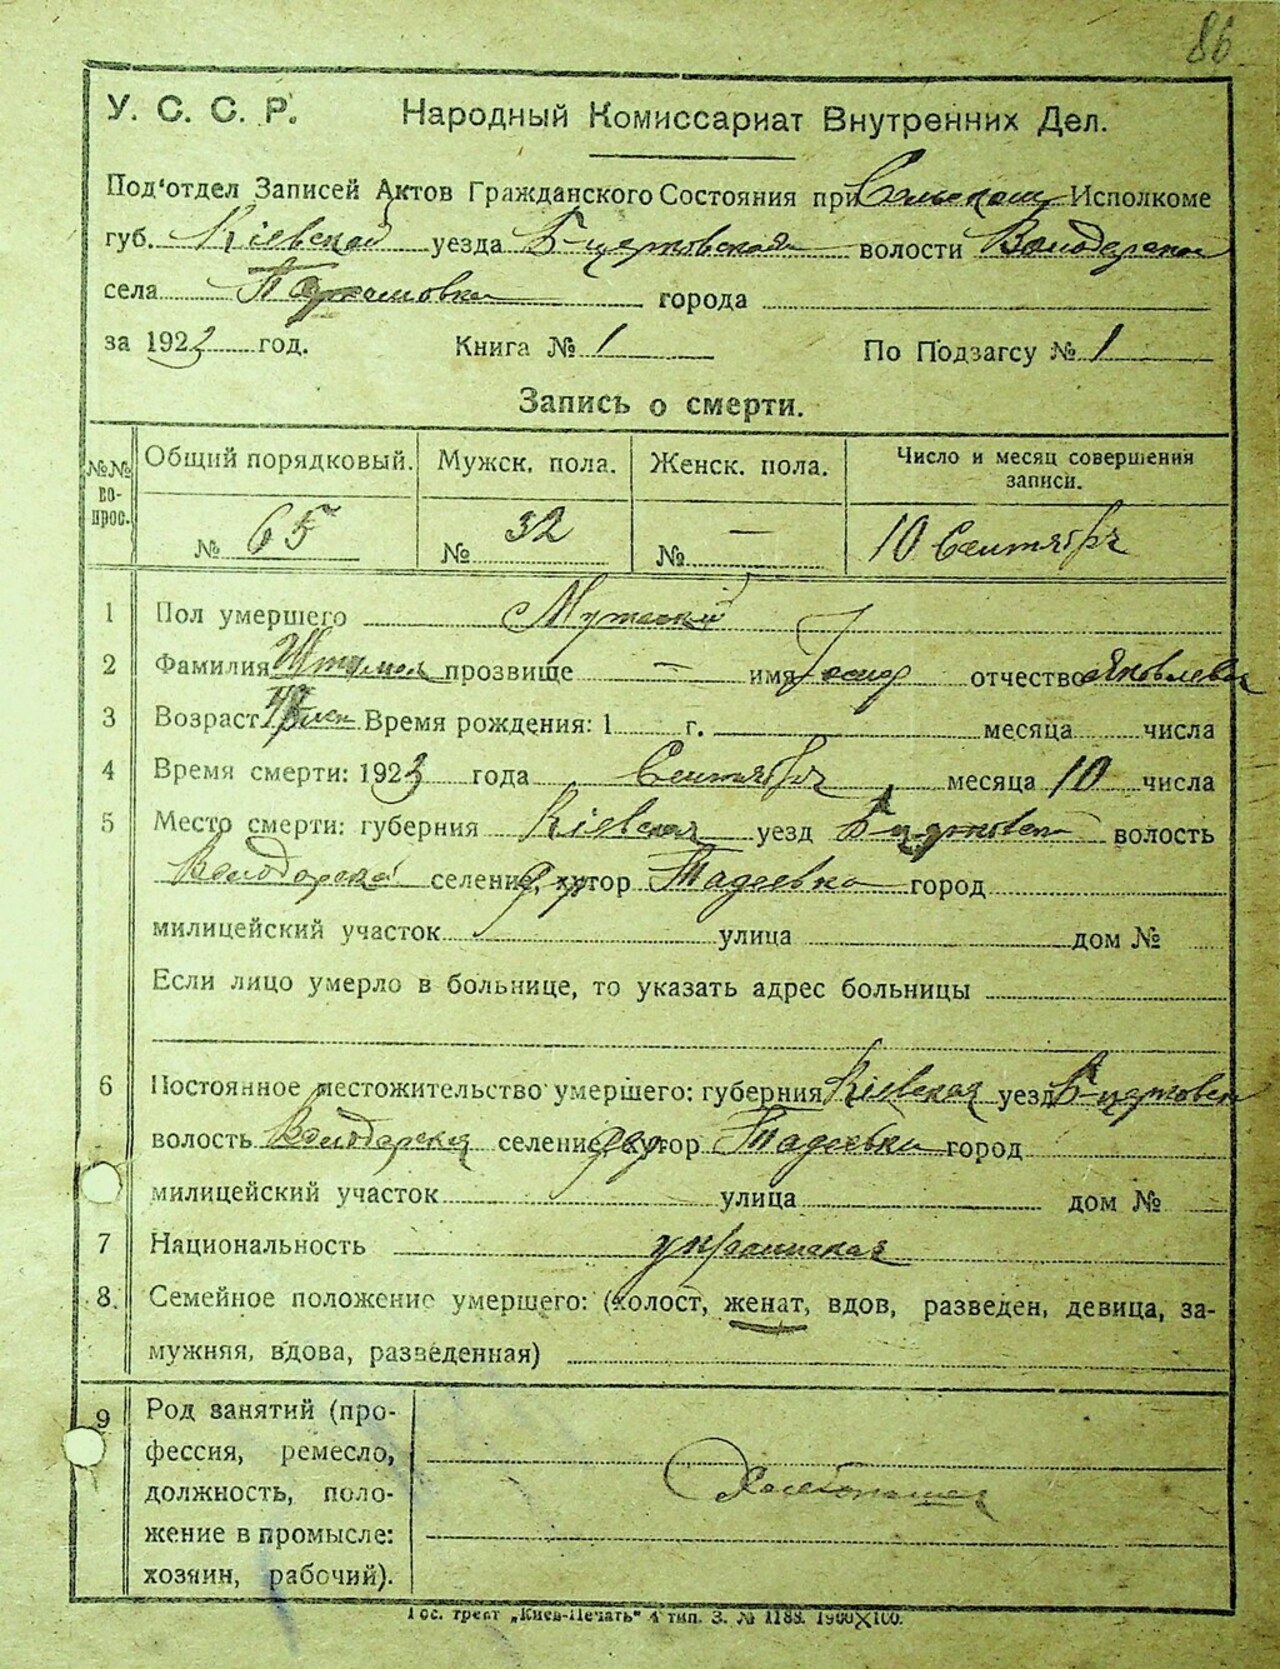 86
У. С. С. Р. Народный Комиссариат Внутренних Дел.
Под'отдел Записей Актов Гражданского Состояния при Сельском Исполкоме
губ. Кіевской уезда Б-церковской волости Володарской
села города
за 1923 год. Книга № 1 По Подзагсу № 1
Запись о смерти.
№№ вопрос. Общий порядковый. Мужск. пола. Женск. пола. Число и месяц совершения записи.
№ 65 № 32 № — 10 Сентября
1 Пол умершего Мужской
2 Фамилия прозвище — имя Іосиф отчество Яковлевич
3 Возраст Время рождения: 1 г. месяца числа
4 Время смерти: 1923 года Сентября месяца 10 числа
5 Место смерти: губерния Кіевская уезд Б-церковск волость
Володарской селение, хутор Тадеевка город
милицейский участок улица дом №
Если лицо умерло в больнице, то указать адрес больницы
6 Постоянное местожительство умершего: губерния Кіевская уезд Б-церковск
волость Володарская селение, хутор Тадеевка город
милицейский участок улица дом №
7 Национальность украинская
8. Семейное положение умершего: (холост, женат, вдов, разведен, девица, за-
мужняя, вдова, разведенная)
9 Род занятий (про-
фессия, ремесло,
должность, поло- Хлебопашец
жение в промысле:
хозяин, рабочий).
Гос. трест „Киев-Печать" 4 тип. З. № 1188. 1900×100.